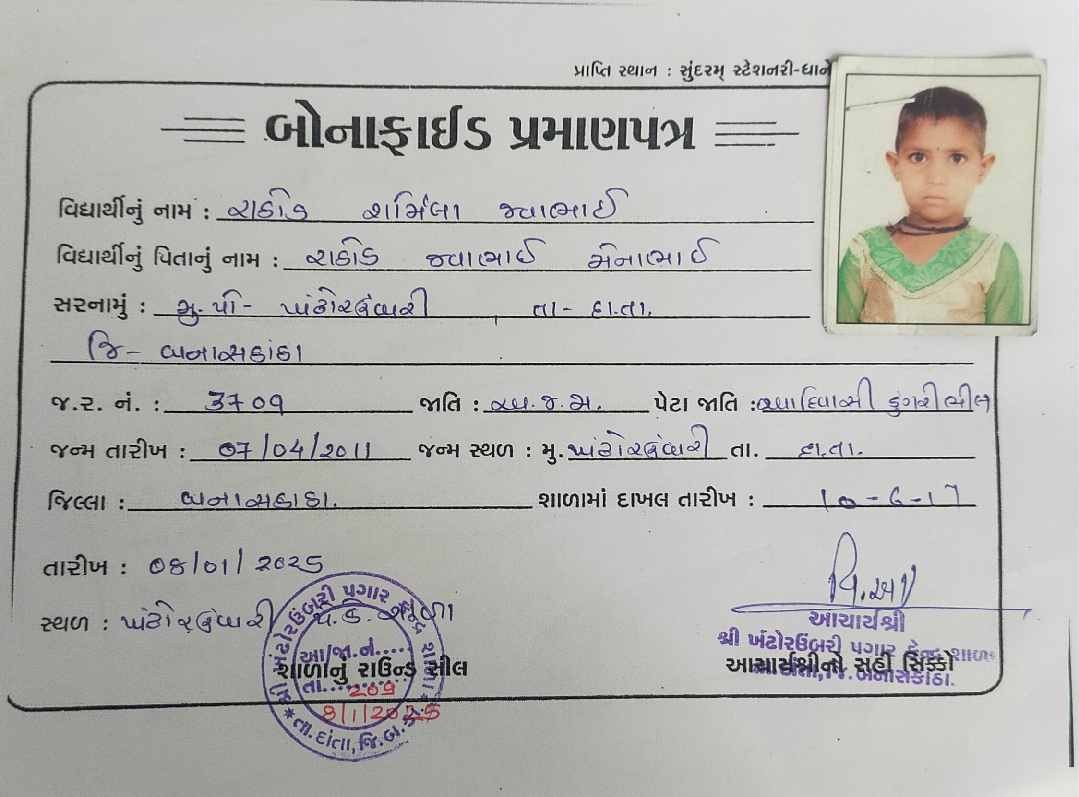 પ્રાપ્તિ સ્થાન : સુંદરમ્ સ્ટેશનરી-ધાને
બોનાફાઈડ પ્રમાણપત્ર
વિદ્યાર્થીનું નામ : રાઠોડ શર્મિલા જવાભાઈ
વિદ્યાર્થીનું પિતાનું નામ : રાઠોડ જવાભાઈ મેનાભાઈ
સરનામું : મુ. પો - ખંઢોરઉંબરી તા - દાંતા.
જિ - બનાસકાંઠા
જ.ર. નં. : 3709 જાતિ : અ.જ.જા. પેટા જાતિ : આદિવાસી ડુંગરી ભીલ
જન્મ તારીખ : 07/04/2011 જન્મ સ્થળ : મુ. ખંઢોરઉંબરી તા. દાંતા.
જિલ્લા : બનાસકાંઠા. શાળામાં દાખલ તારીખ : 10-6-17
તારીખ : ૦૪/૦૧/૨૦૨૫
સ્થળ : ખંઢોરઉંબરી પ.કે. શાળા
આચાર્યશ્રી
શ્રી ખંઢોરઉંબરી પગાર કેન્દ્ર શાળા
આચાર્યશ્રીનો સહી સિક્કો
તા. દાંતા, જિ. બનાસકાંઠા.
શ્રી ખંઢોરઉંબરી પગાર કેન્દ્ર શાળા
આ/જા.નં.....
શાળાનું રાઉન્ડ સીલ
તા. 209
૪/1/2025
* તા. દાંતા, જિ. બ.કાં. *